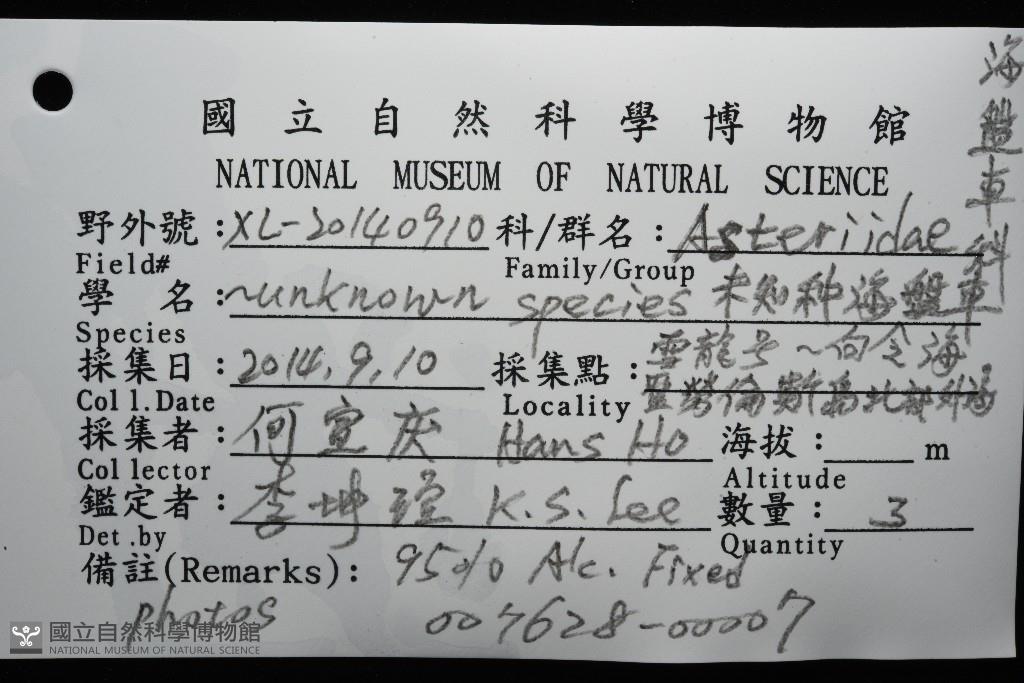 國立自然科學博物館
NATIONAL MUSEUM OF NATURAL SCIENCE
海盤車科
野外號:XL-20140910 科/群名:Asteriidae
Field# Family/Group
學名:~unknown species 未知种海盤車
Species
採集日:2014,9,10 採集點:雲龍号~向令海
Coll.Date Locality 北部外海
採集者:何宣庆 Hans Ho 海拔: m
Collector Altitude
鑑定者:李坤瑄 K.S. Lee 數量:3
Det.by Quantity
備註(Remarks): 95% Alc. Fixed
photos 007628-00007
國立自然科學博物館
NATIONAL MUSEUM OF NATURAL SCIENCE